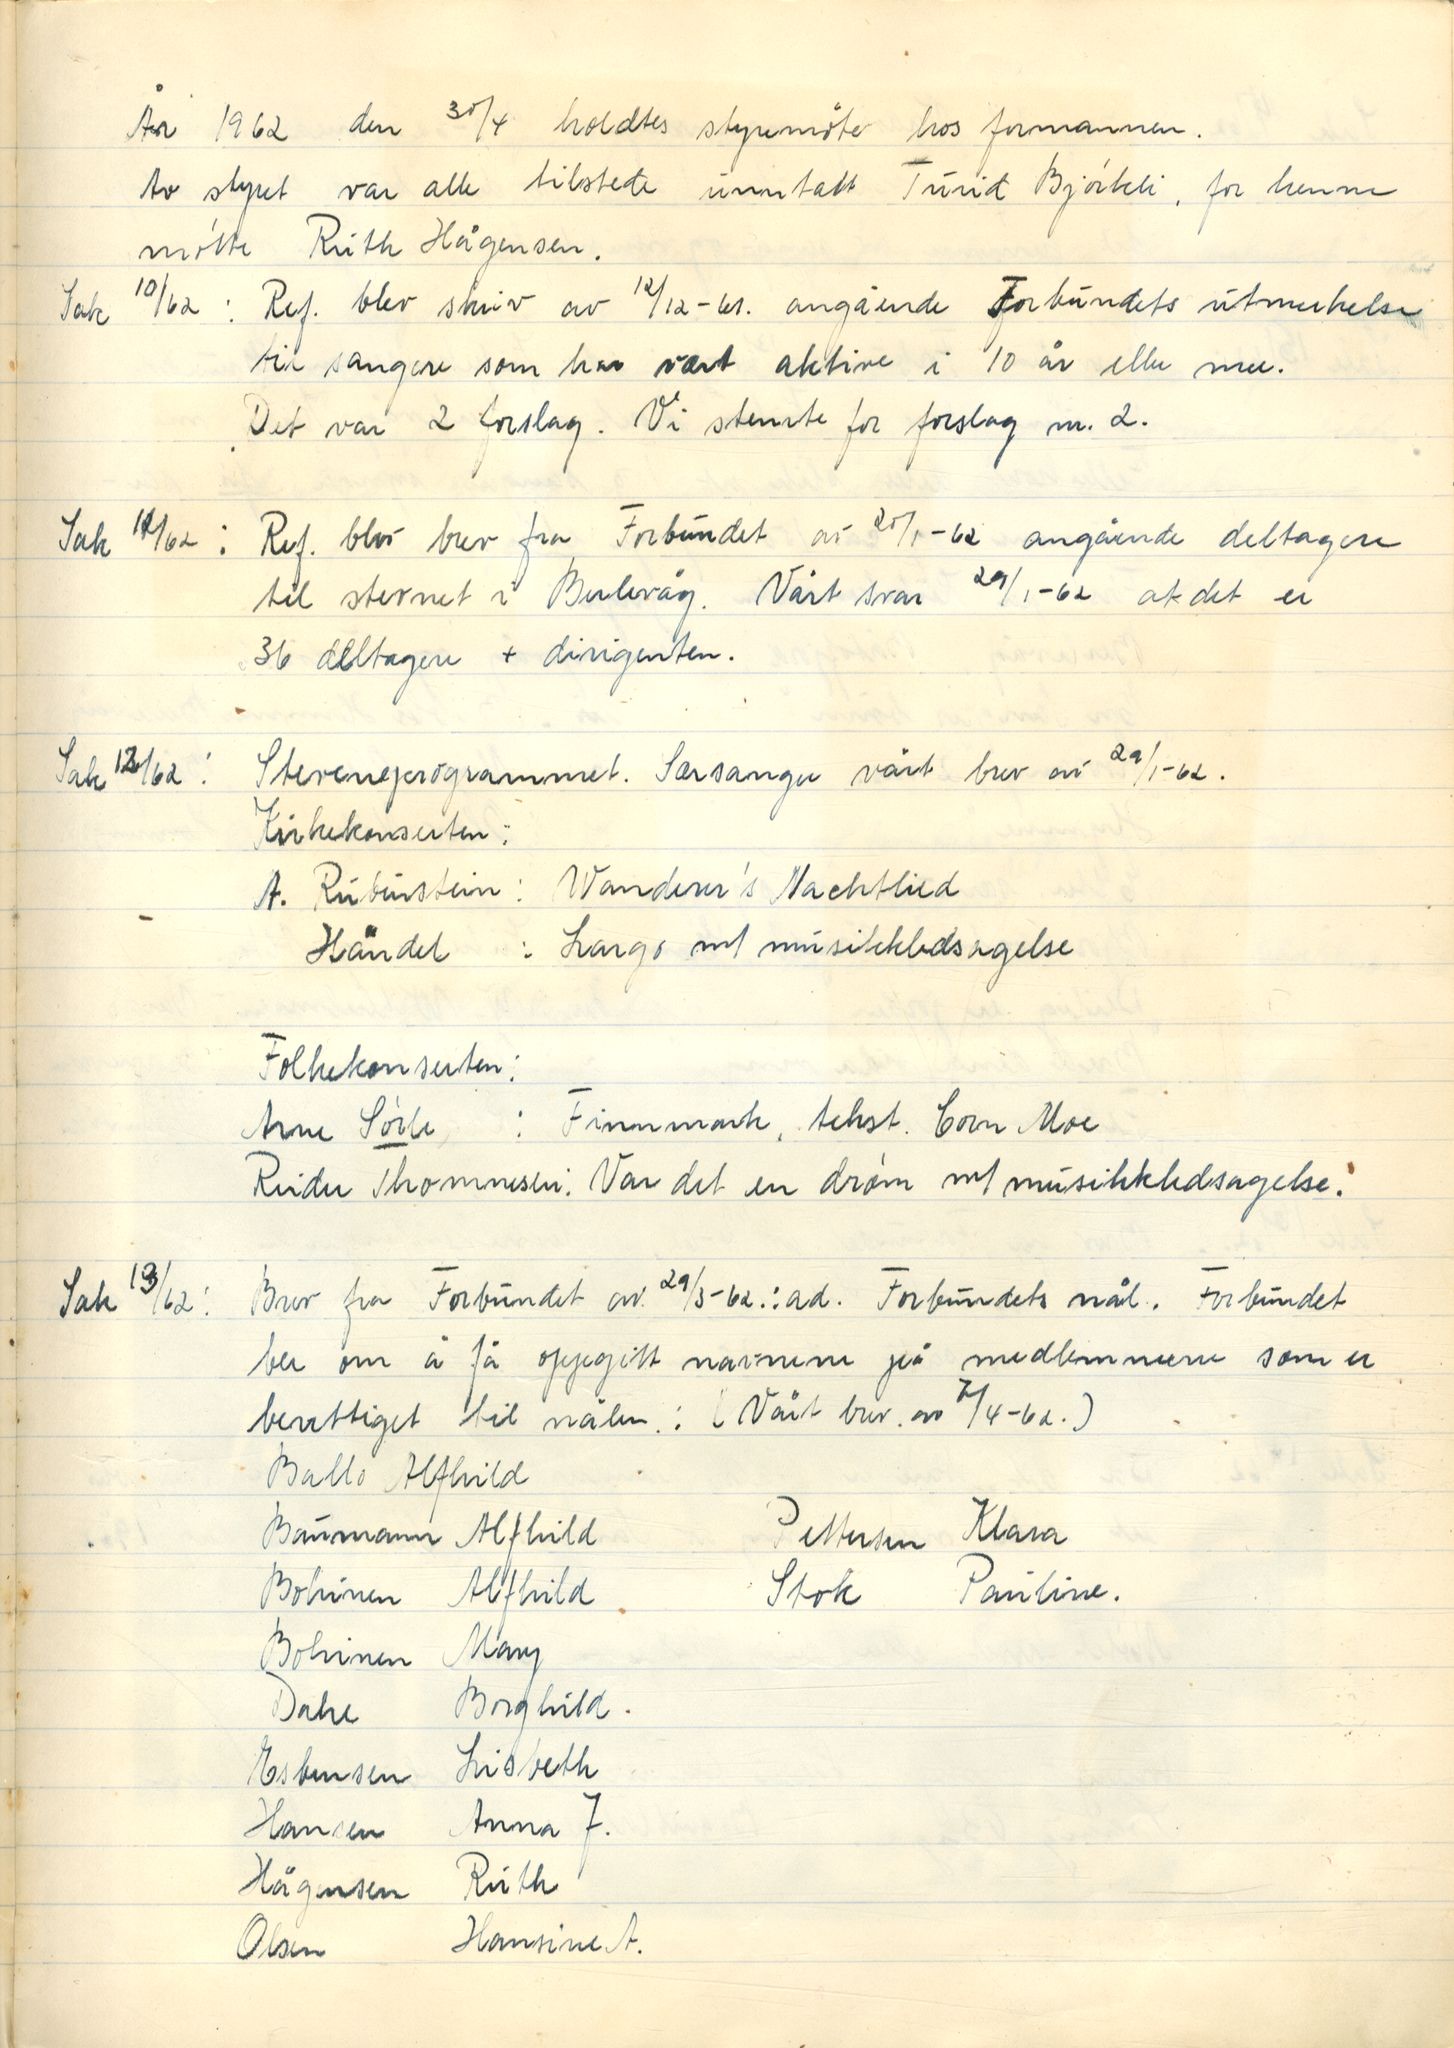 År 1962 den 30/4 holdtes styremöte hos formannen.
Av styret var alle tilstede unntatt Turid Björkli, for henne
mötte Ruth Hågensen.
Sak 10/62: Ref. blev skriv av 12/12-61. angående Forbundets utmerkelse
til sangere som har vært aktive i 10 år eller mer.
Det var 2 forslag. Vi stemte for forslag nr. 2.
Sak 11/62: Ref. blev brev fra Forbundet av 20/1-62 angående deltagere
til stevnet i Berlevåg. Vårt svar 29/1-62 at det er
36 deltagere + dirigenten.
Sak 12/62: Stevneprogrammet. Særsanger vårt brev av 29/1-62.
Kirkekonserten:
A. Rubinstein: Wanderer's Nachtlied
Händel : Largo m/ musikkledsagelse
Folkekonserten:
Arne Sörli : Finnmark, tekst. Corn Moe
Reidar Thommesen: Var det en dröm m/ musikkledsagelse.
Sak 13/62: Brev fra Forbundet av 29/3-62.: ad. Forbundets nål. Forbundet
ber om å få oppgitt navnene på medlemmerne som er
berettiget til nålen: (Vårt brev av 7/4-62.)
Ballo Alfhild
Baumann Alfhild Pettersen Klara
Bohinen Alfhild Stok Pauline.
Bohinen Mary
Dahe Borghild.
Esbensen Lisbeth
Hansen Anna J.
Hågensen Ruth
Olsen Hansine A.